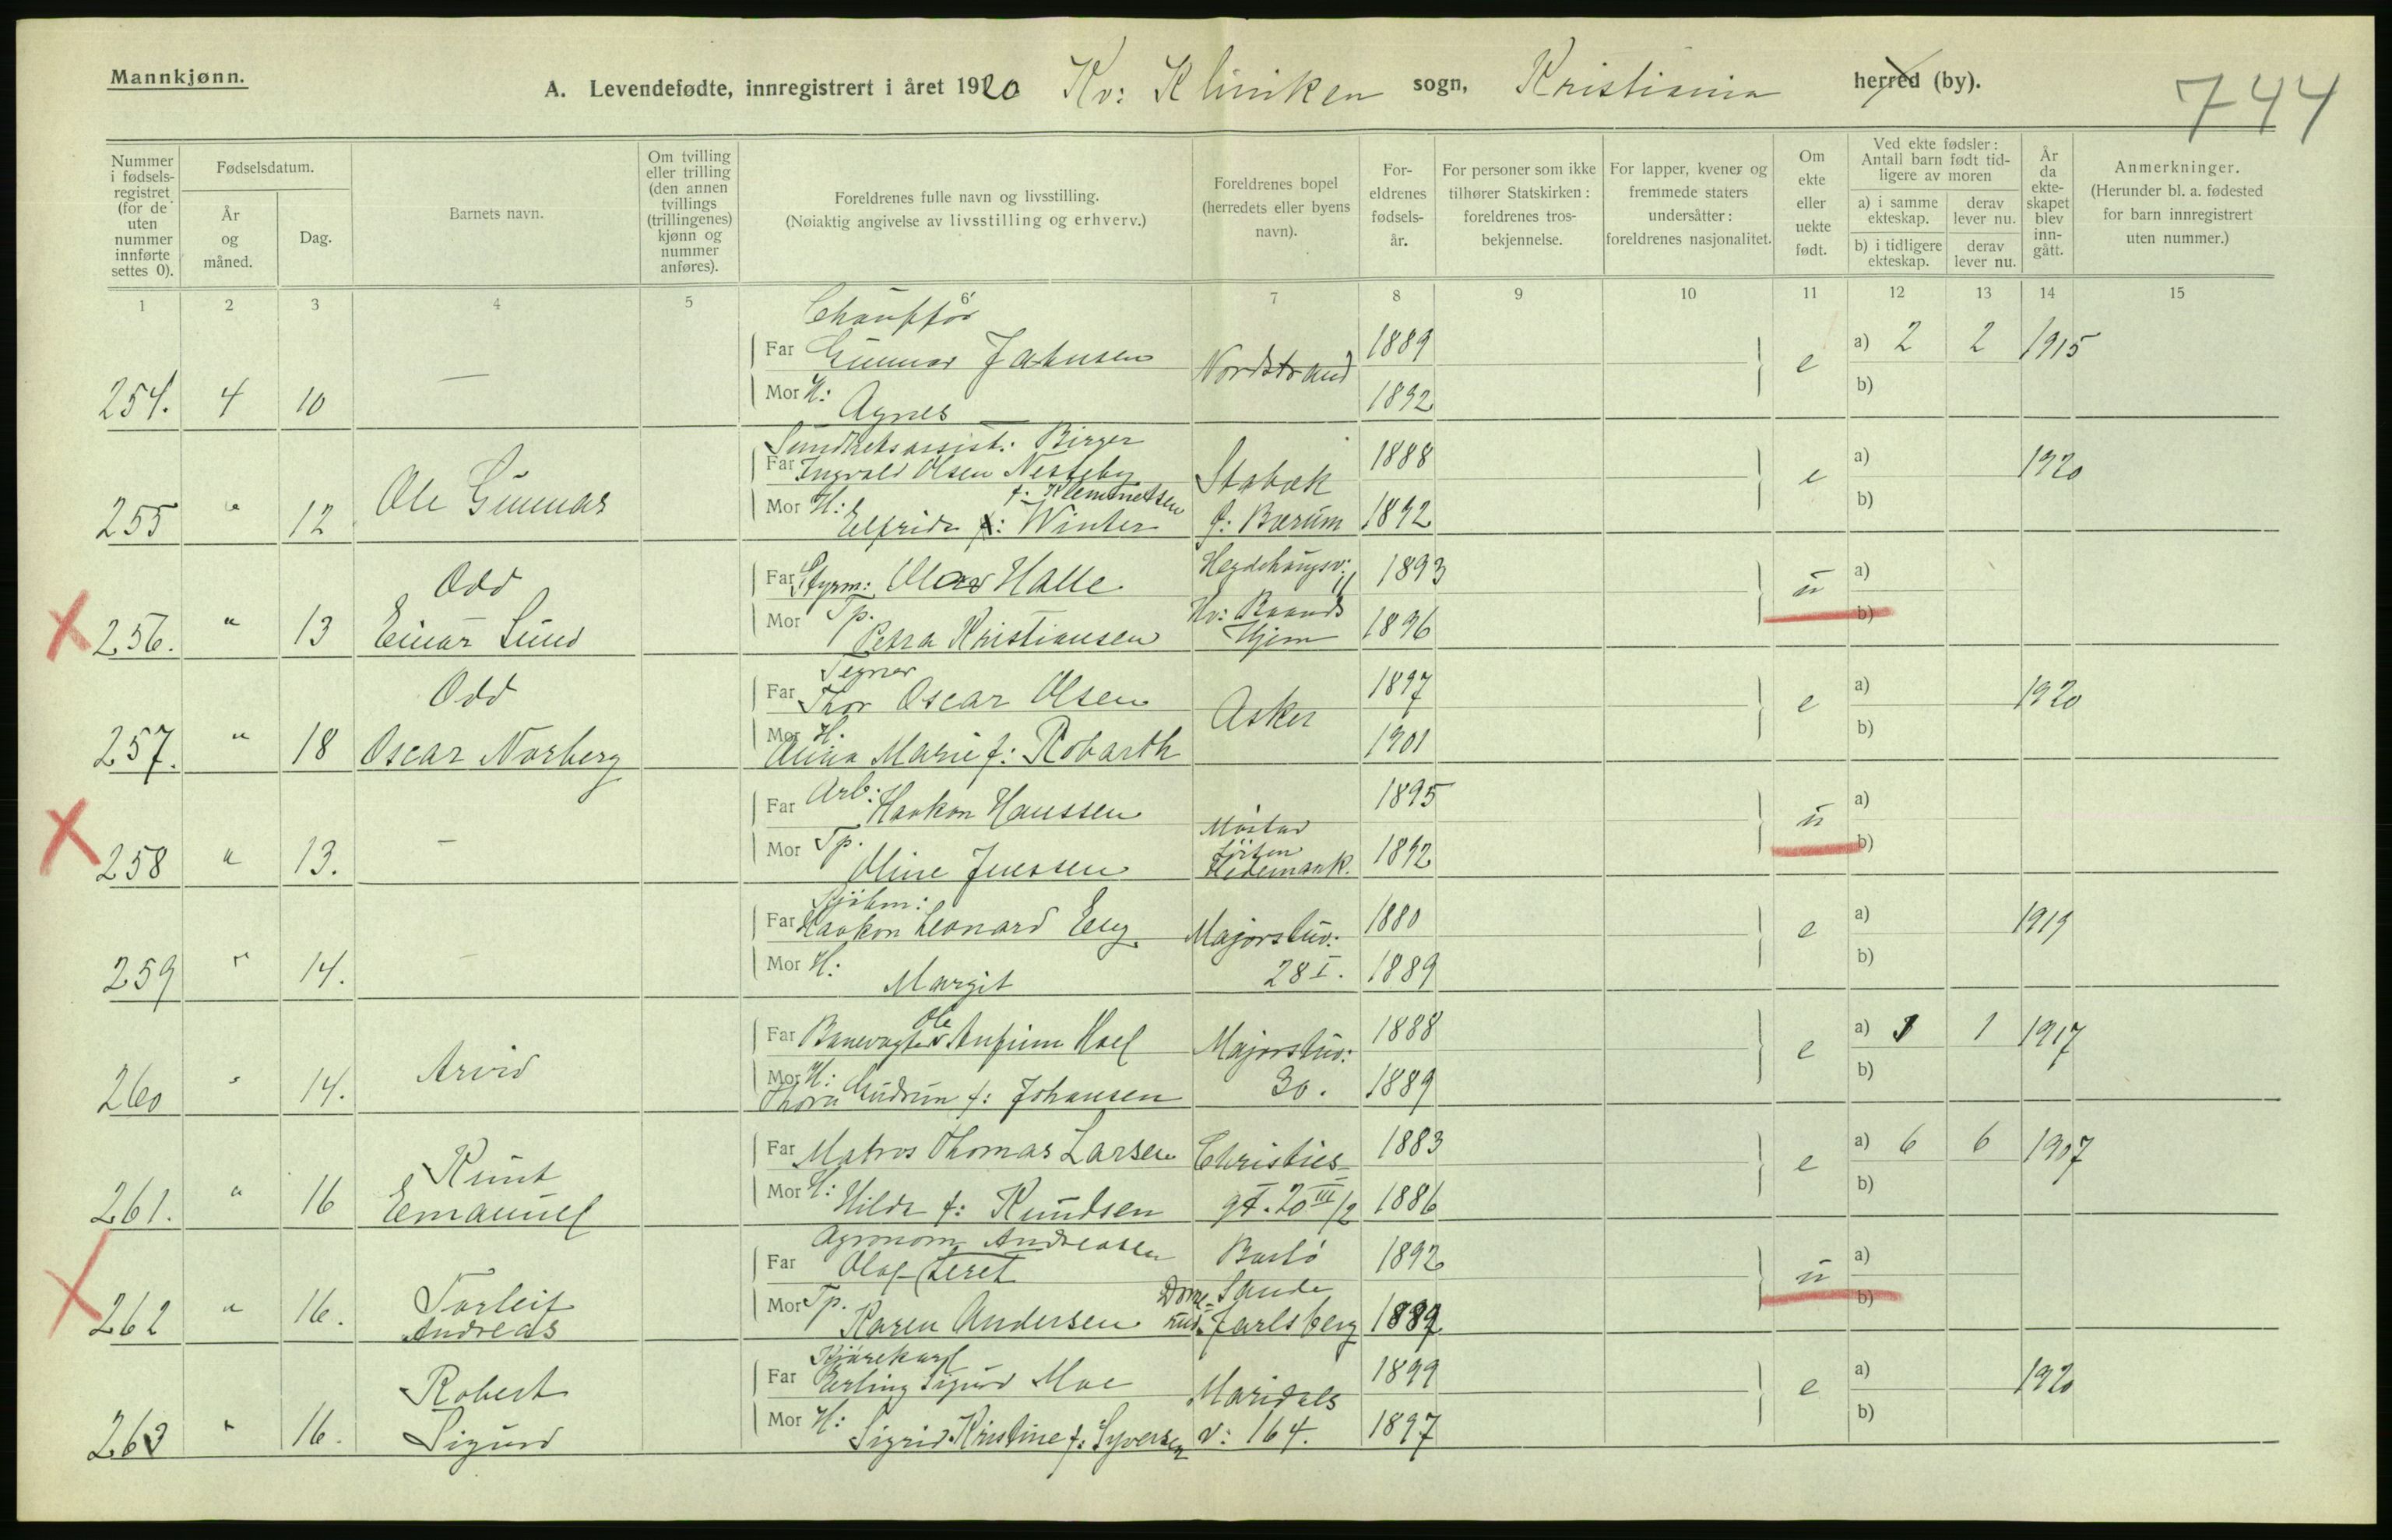 Mannkjønn.
A. Levendefødte, innregistrert i året 1920 Kv: Kliniken sogn, Kristiania herred (by).
744
Nummer i fødsels-registret (for de uten nummer innførte settes 0).
Fødselsdatum.
År og måned.
Dag.
Barnets navn.
Om tvilling eller trilling (den annen tvillings (trillingenes) kjønn og nummer anføres).
Foreldrenes fulle navn og livsstilling.
(Nøiaktig angivelse av livsstilling og erhverv.)
Foreldrenes bopel (herredets eller byens navn).
For-eldrenes fødsels-år.
For personer som ikke tilhører Statskirken: foreldrenes tros-bekjennelse.
For lapper, kvener og fremmede staters undersåtter: foreldrenes nasjonalitet.
Om ekte eller uekte født.
Ved ekte fødsler: Antall barn født tid-ligere av moren
a) i samme ekteskap.
derav lever nu.
b) i tidligere ekteskap.
derav lever nu.
År da ekte-skapet blev inn-gått.
Anmerkninger.
(Herunder bl. a. fødested for barn innregistrert uten nummer.)
1 2 3 4 5 6 7 8 9 10 11 12 13 14 15
Chauffør
Far Gunnar Jahnsen Nordstrand 1889 e a) 2 2 1915
254. 4 10 — Mor H: Agnes — 1892 b)
Sundhetsassist: Birger
Far Ingvald Olsen Nesteby Stabæk 1888 e a) 1920
f: Klemmetsen
255 " 12 Ole Gunnar Mor H: Elfrida f: Winter p: Bærum 1892 b)
Odd Far Styrm: Olav Halle Hegdehaugsv: 11 1893 u a)
256. " 13 Einar Lund Mor Tp. Petra Kristiansen Kv: Raands Hjem 1896 b)
Tegner
Odd Far Thor Oscar Olsen Asker 1897 e a) 1920
257. " 18 Oscar Norberg Mor H. Anna Marie f: Robarth 1901 b)
Far Arb: Haakon Hanssen 1895 u a)
258 " 13. — Mor Tp. Oline Jenssen Løiten Hedemark. 1892 b)
Far Haakon Leonard Eng Majorstuv: 1880 e a) 1919
259 " 14. — Mor H: Margit 28 I. 1889 b)
Ole
Far Banevogter Anfinn Hoel Majorstuv: 1888 e a) 1 1 1917
260 " 14. Arvid Mor H: Thora Gudrun f: Johansen 30. 1889 b)
Far Matros Thomas Larsen Christies- 1883 e a) 6 6 1907
261. " 16 Knut Emanuel Mor H: Hilda f: Knudsen gt. 20 III/2 1886 b)
Agronom Andreasen
Far Olaf Leret Barlö 1892 u a)
262 " 16. Torleif Andreas Mor Tp. Karen Andersen Sande Jarlsberg 1889 b)
Kjørekarl
Far Erling Sigurd Moe Maridals 1899 e a) 1920
263 " 16. Robert Sigurd Mor H: Sigrid Kristine f: Syversen v: 164. 1897 b)